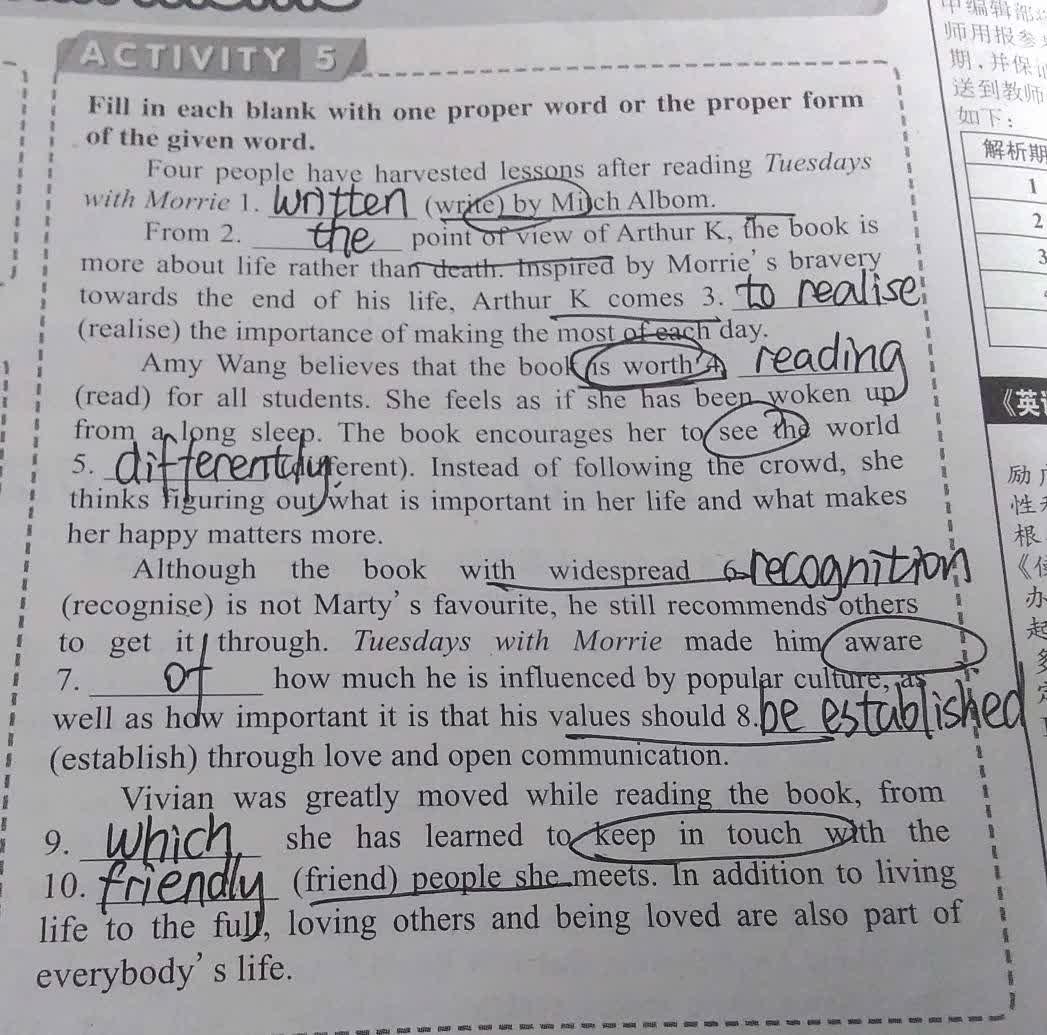 中编辑部
师用报参
ACTIVITY 5
期,并保
送到教师
Fill in each blank with one proper word or the proper form
如下:
of the given word.
解析期
Four people have harvested lessons after reading Tuesdays
1
with Morrie 1. written (write) by Mitch Albom.
2
From 2. the point of view of Arthur K, the book is
3
more about life rather than death. Inspired by Morrie's bravery
towards the end of his life, Arthur K comes 3. to realise
(realise) the importance of making the most of each day.
Amy Wang believes that the book is worth 4. reading
(read) for all students. She feels as if she has been woken up
《英语
from a long sleep. The book encourages her to see the world
5. differently (different). Instead of following the crowd, she
励
thinks figuring out what is important in her life and what makes
性
her happy matters more.
根
Although the book with widespread 6. recognition
《
(recognise) is not Marty's favourite, he still recommends others
办
to get it through. Tuesdays with Morrie made him aware
起
7. of how much he is influenced by popular culture, as
well as how important it is that his values should 8. be established
(establish) through love and open communication.
Vivian was greatly moved while reading the book, from
9. which she has learned to keep in touch with the
10. friendly (friend) people she meets. In addition to living
life to the full, loving others and being loved are also part of
everybody's life.